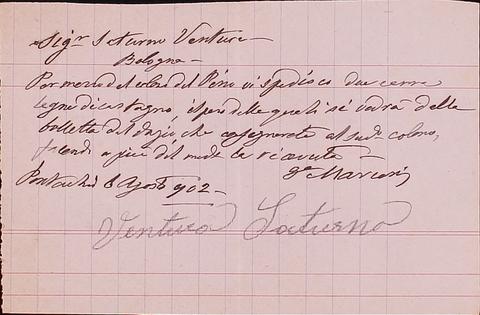 Sigr Saturno Ventura
Bologna
Per mezzo del colono del Pino vi spedisco due carra
legne di castagno, il peso delle quali si vedrà dalla
bolletta del dazio che consegnerete al sudo colono,
facendo a piè del mede la ricevuta
Marconi
Pontecchio 8 Agosto 902
Ventura Saturno